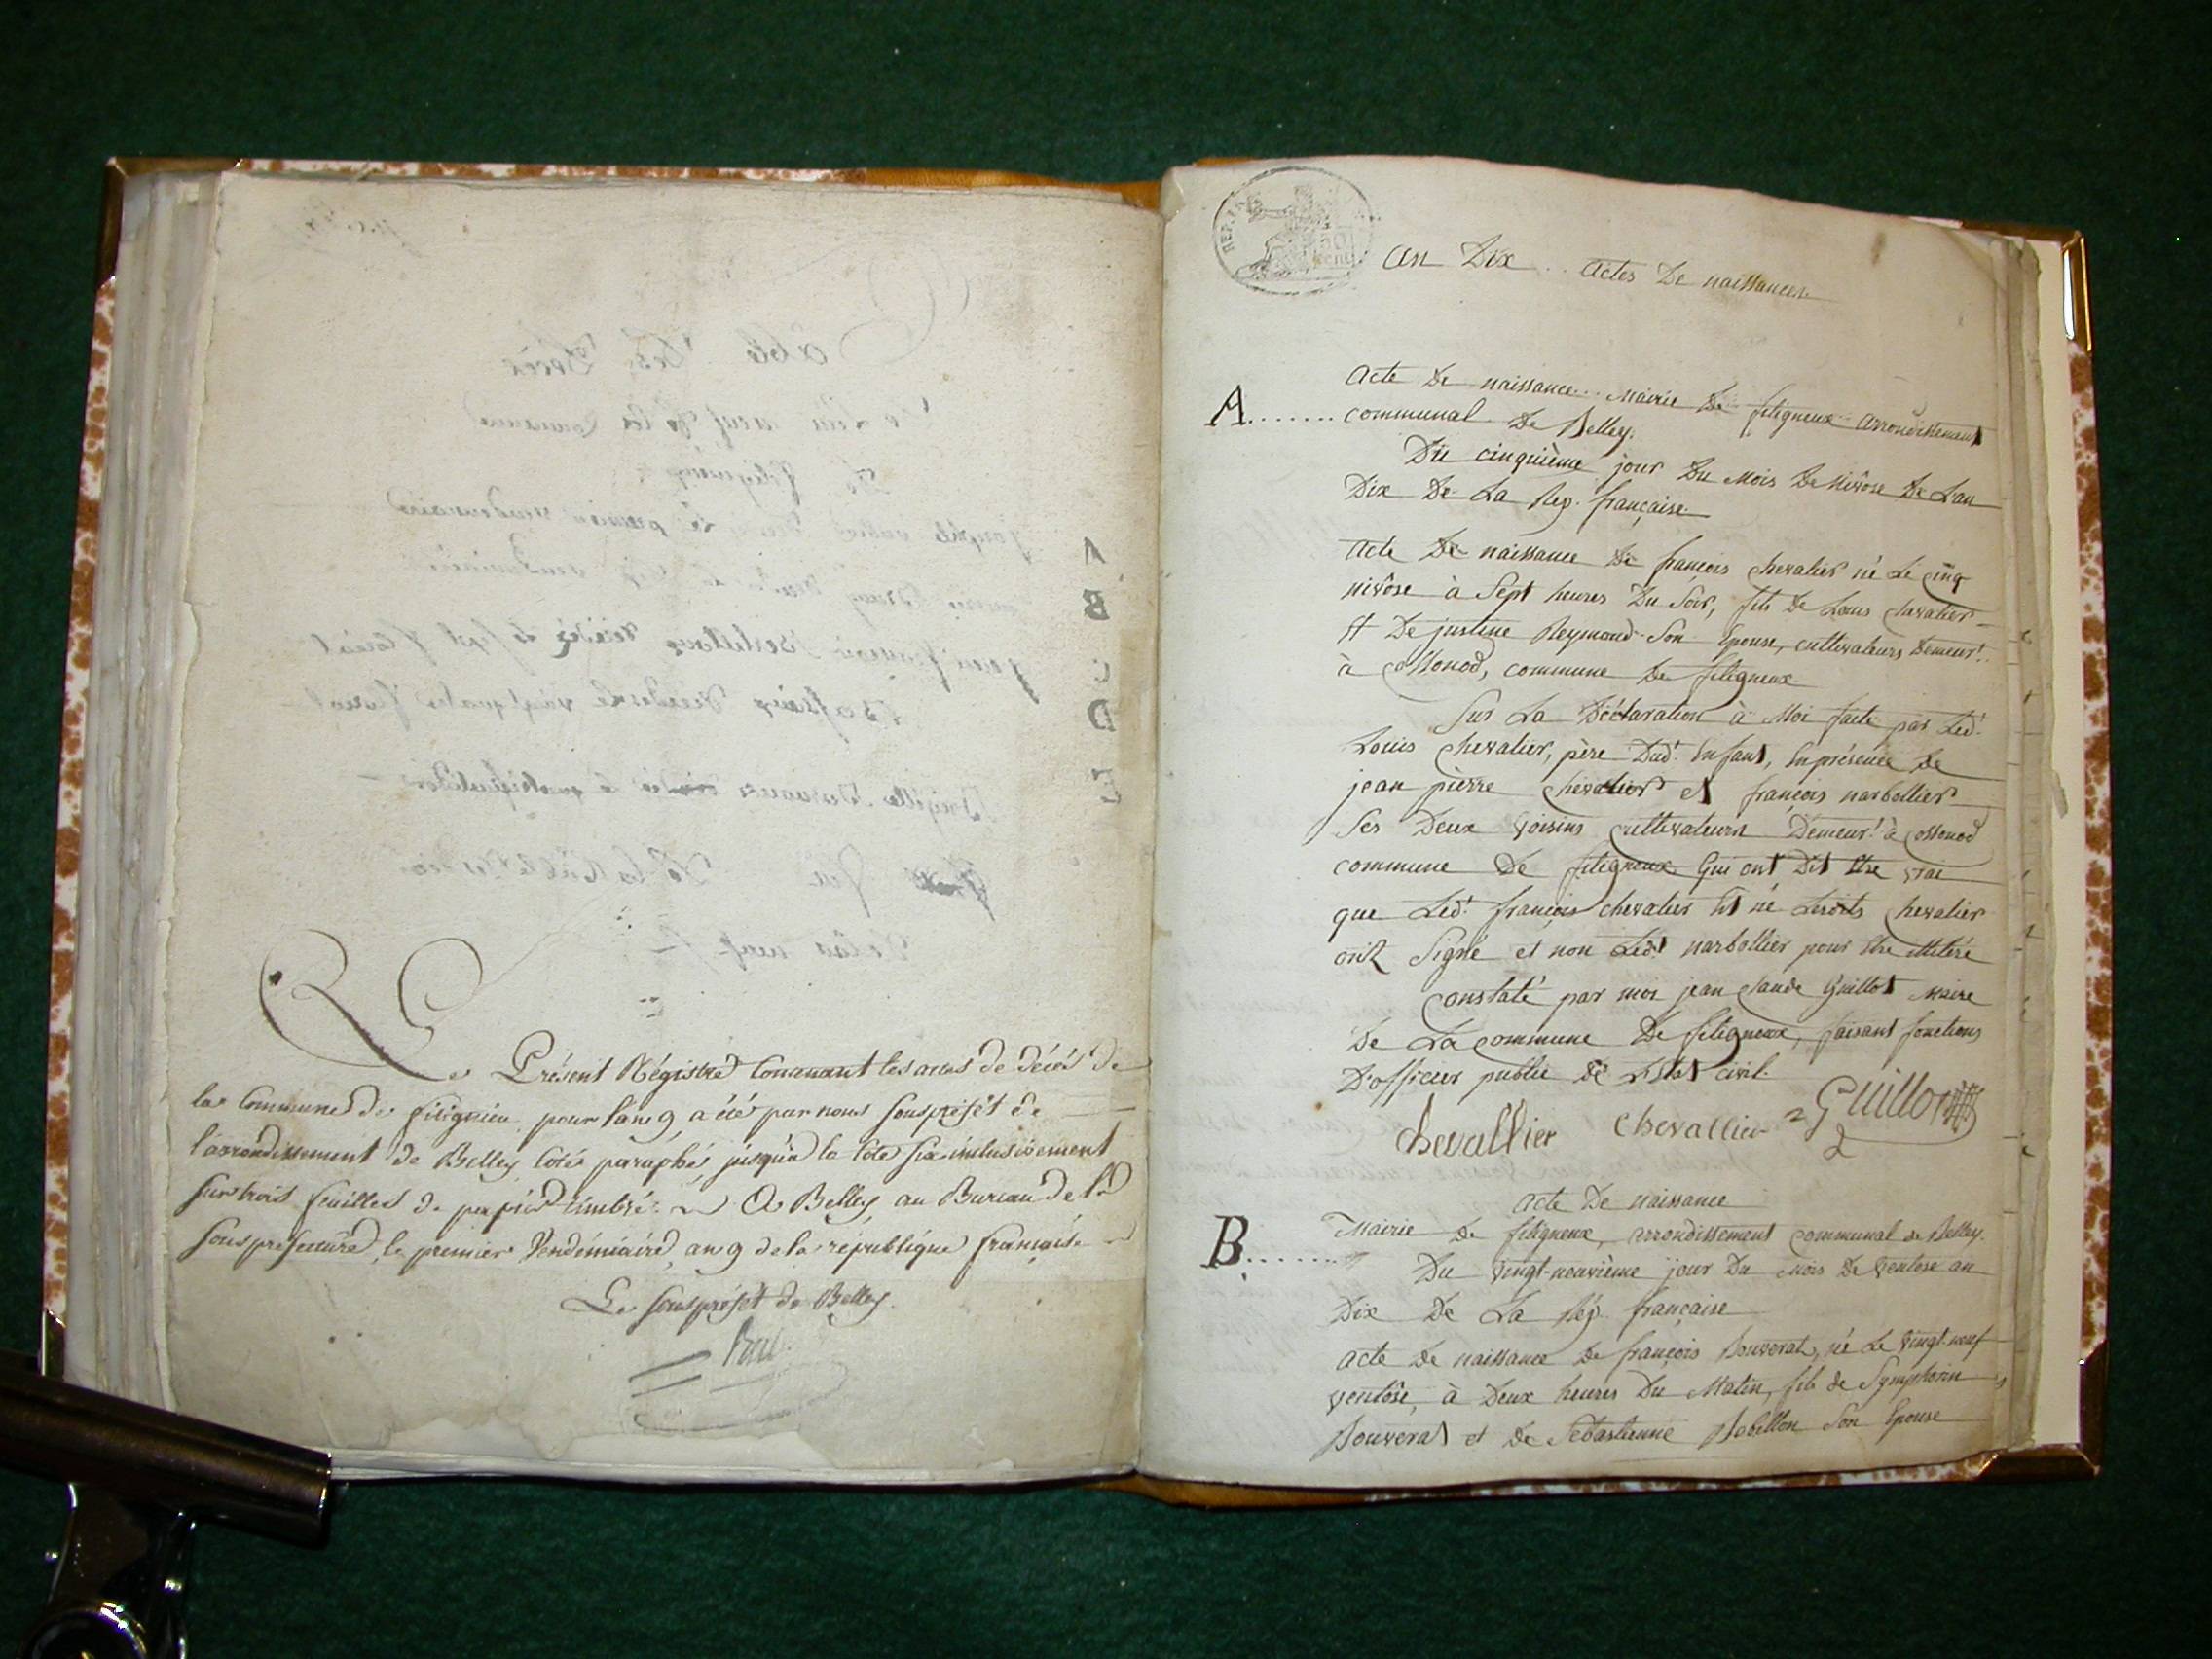 Le Présent Régistre Contenant les actes de décés de
la Commune de filignieu, pour l'an 9 a été par nous Sousprefét de
l'arrondissement de Belley Coté & paraphé jusqu'a la Cote six inclusivement
Sur trois feuilles de papier timbré. A Belley au Bureau de la
Sousprefecture, le premier Vendémiaire, an 9 de la république française
Le sousprefét de Belley.
REP. FRA.
an Dix .. actes De naissances.
Acte De naissance... Mairie De filigneux arrondissement
A....... communal De Belley.
Du cinquième jour Du Mois De Nivôse De L'an
Dix De La Rep. française
Acte De naissance De françois chevalier né Le cinq
nivôse à Sept heures Du Soir, fils De Louis chevalier
Et De justine Reymond Son Epouse, cultivateurs Demeurt.
à Ossonod, commune De filigneux
Sur La Déclaration à Moi faite par Led.t
Louis chevalier, père Dud.t Enfant, En présence De
jean pierre chevalier Et françois narbollier
Ses Deux voisins cultivateurs Demeur.t à Ossonod
commune De filigneux Qui ont Dit Etre vrai
que Led.t françois chevalier Est né Lesdits chevalier
ont Signé et non Led.t narbollier pour Etre illitéré
Constaté par moi jean claude Guillot Maire
De La commune De filigneux, faisant fonctions
D'officier public De L'Etat civil.
chevallier chevallier Guillot
acte De naissance
Mairie De filigneux, arrondissement communal de Belley.
B....... Du vingt-neuvième jour Du Mois De ventose an
Dix De La Rép. française
acte De naissance De françois Bouverat, né Le vingt-neuf
ventôse, à Deux heures Du Matin, fils de Symphorin
Bouverat et De Sébastienne Rebillon Son Epouse